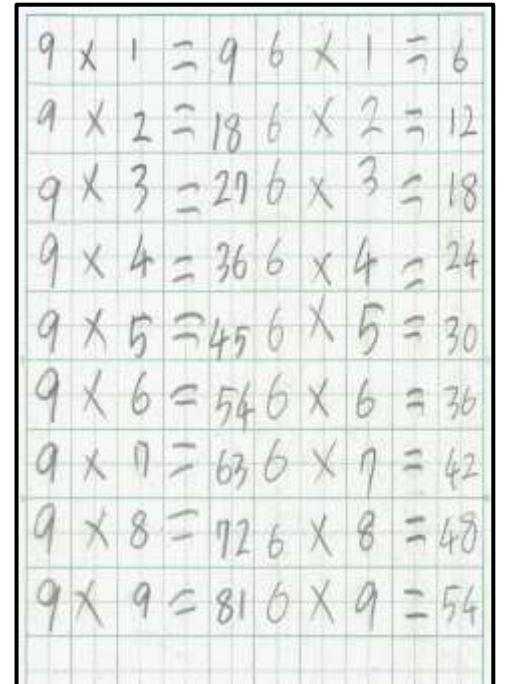 9 × 1 = 9 6 × 1 = 6
9 × 2 = 18 6 × 2 = 12
9 × 3 = 27 6 × 3 = 18
9 × 4 = 36 6 × 4 = 24
9 × 5 = 45 6 × 5 = 30
9 × 6 = 54 6 × 6 = 36
9 × 7 = 63 6 × 7 = 42
9 × 8 = 72 6 × 8 = 48
9 × 9 = 81 6 × 9 = 54